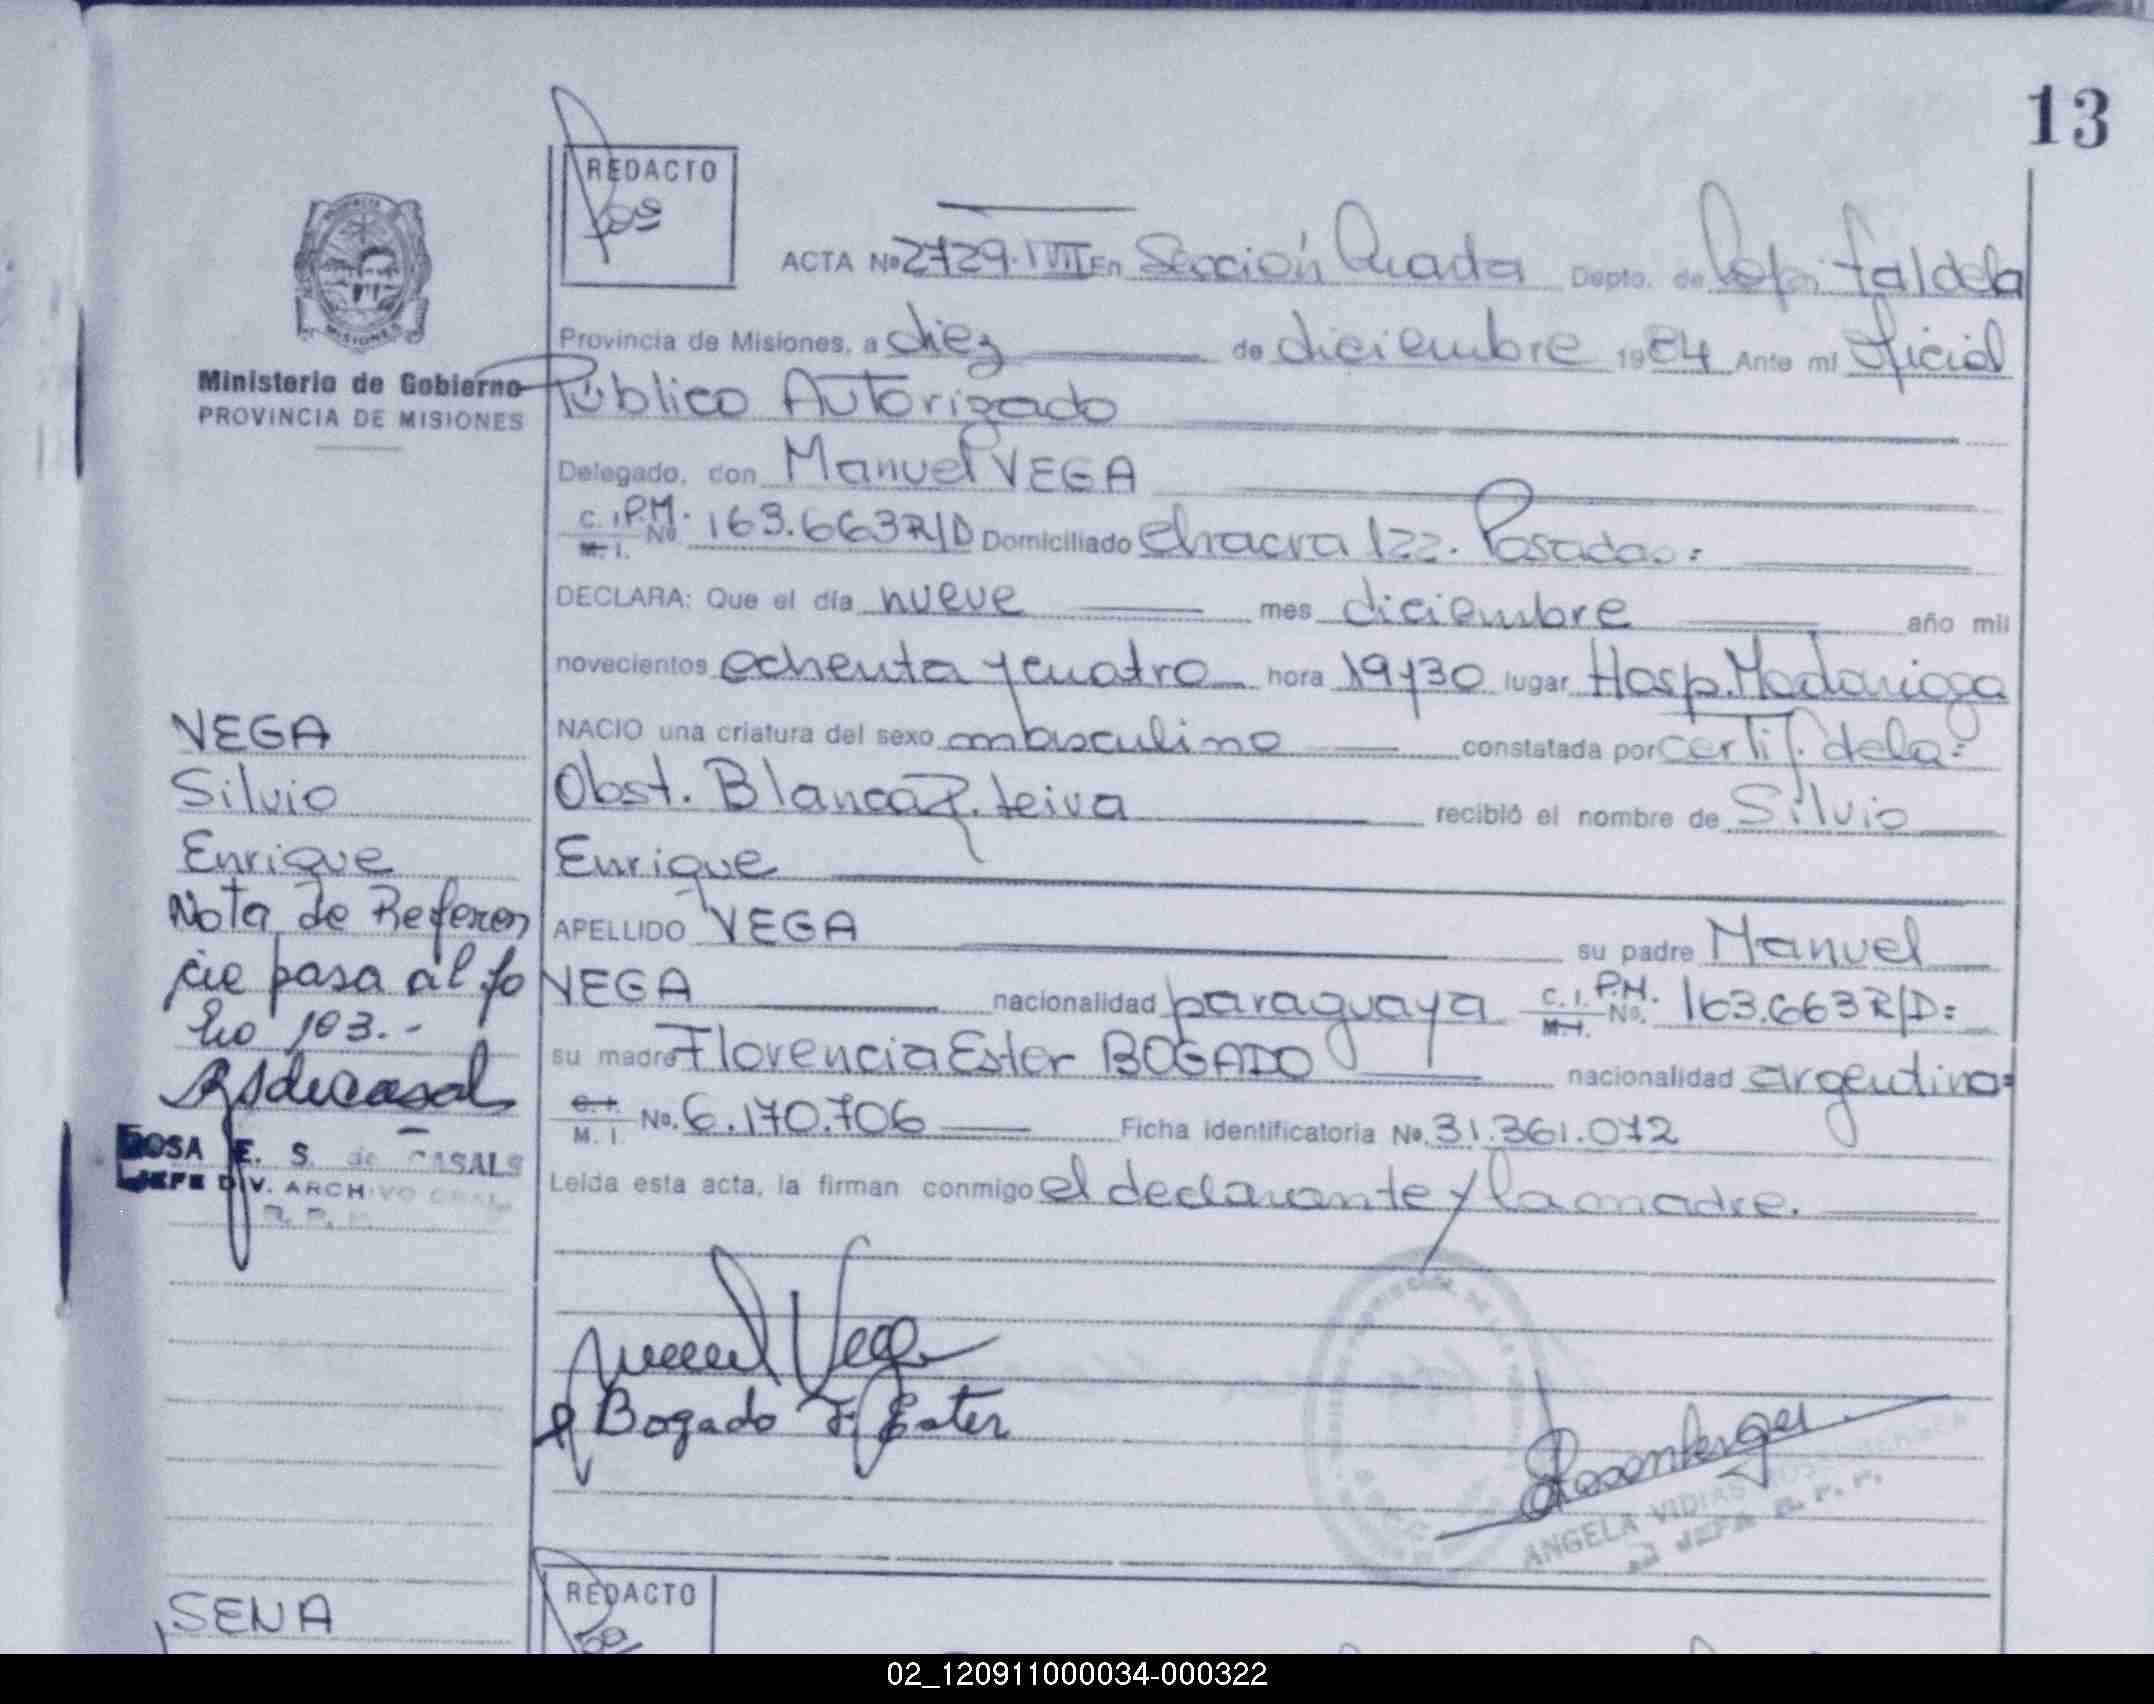 13
REDACTO
ACTA Nº 2729. T VII En Sección Cuarta Depto. de Capital dela
Provincia de Misiones, a diez de diciembre 1984 Ante mi Oficial
Ministerio de Gobierno
PROVINCIA DE MISIONES
MISIONES
Público Autorizado
Delegado, con Manuel VEGA
C. I. P.M. M. I. No 163.663 R/D Domiciliado chacra 122. Posadas=
DECLARA: Que el día nueve mes diciembre año mil
novecientos ochenta y cuatro hora 19y30 lugar Hosp. Madariaga
NACIO una criatura del sexo masculino constatada por certif. dela=
Obst. Blanca R. Leiva recibió el nombre de Silvio
Enrique
APELLIDO VEGA su padre Manuel
VEGA nacionalidad paraguaya C. I. P.M. M. I. No. 163.663 R/D=
su madre Florencia Ester BOGADO nacionalidad argentina=
C. I. M. I. No. 6.170.706 Ficha identificatoria No. 31.361.072
Leida esta acta, la firman conmigo el declarante y la madre.
VEGA
Silvio
Enrique
Nota de Referen
cie pasa al fo
lio 103.-
ROSA E. S. de CASALS
JEFE DIV. ARCHIVO GRAL
R. P. P.
Manuel Vega
Bogado F. Ester
Rosenberger
ANGELA VIDIAS ROSENBERGER
JEFA R. P. P.
REDACTO
SENA
02_120911000034-000322